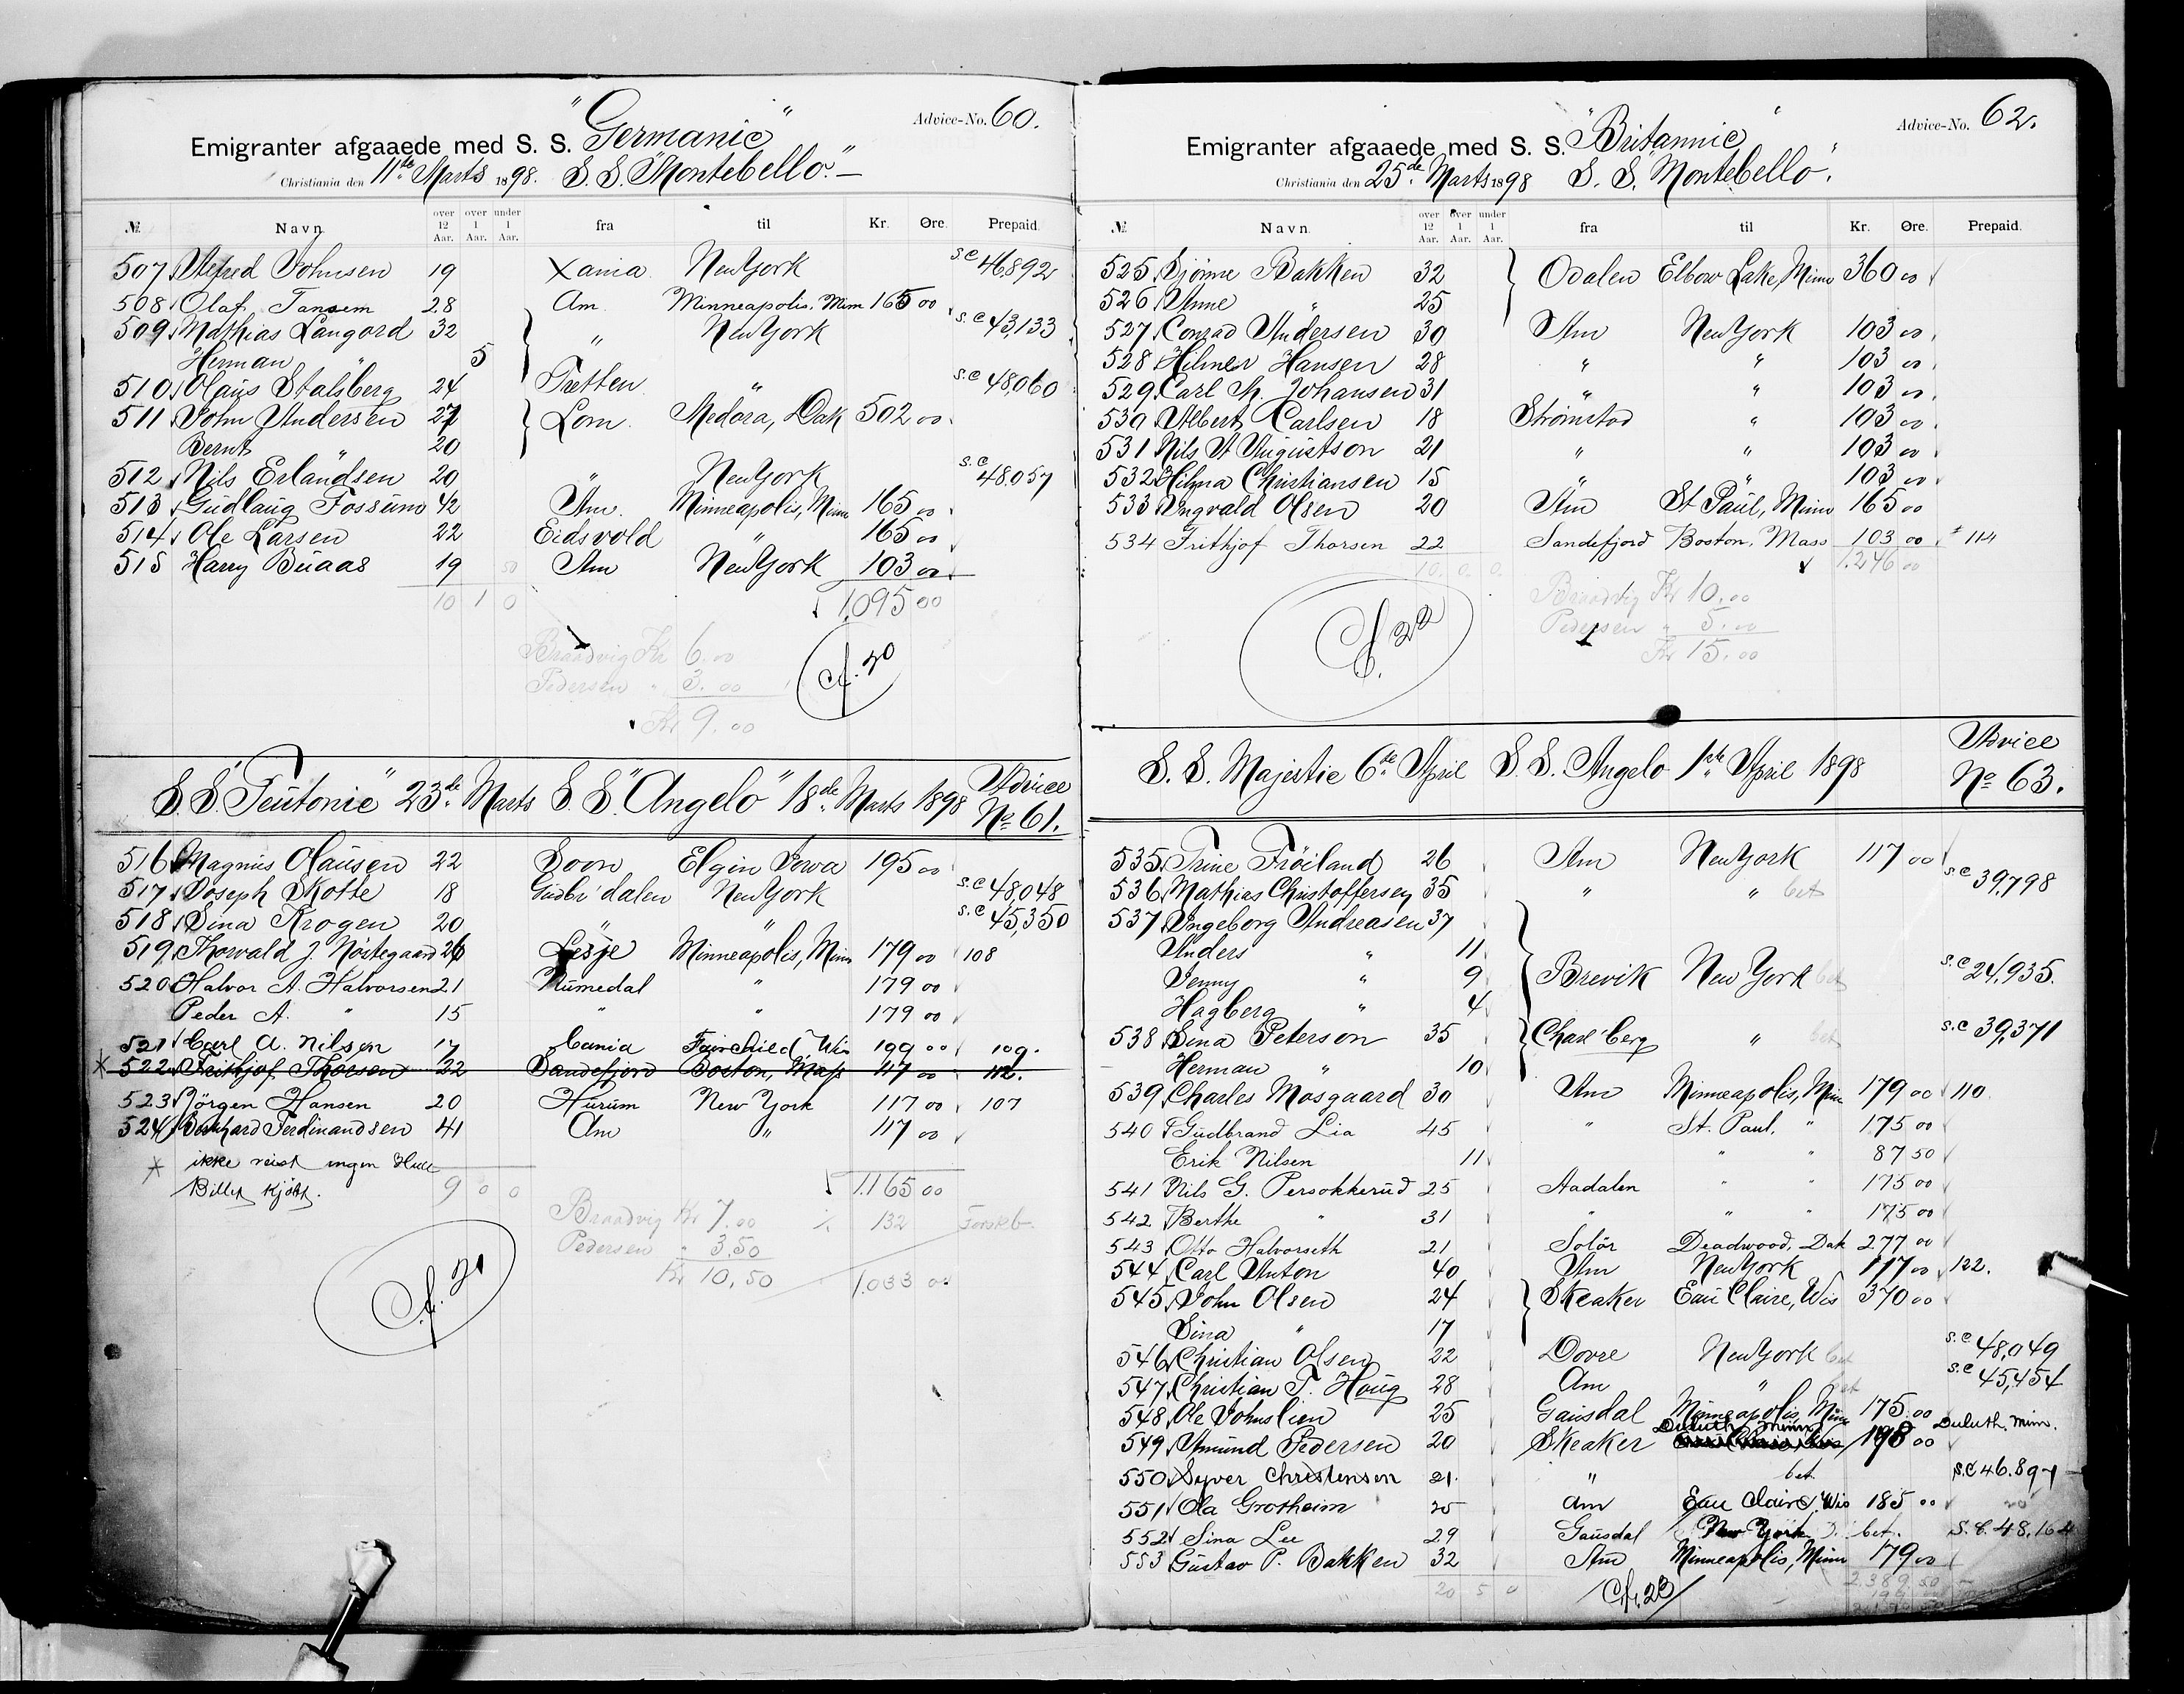 "Germanic" Advice-No. 60.
Emigranter afgaaede med S. S.
Christiania den 11te Marts 1898. S. S. "Montebello."
№ Navn over 12 Aar. over 1 Aar. under 1 Aar. fra til Kr. Øre. Prepaid.
507 Alfred Johnsen 19 Xania New York S.C 46892
508 Olaf Tansem 28 Am Minneapolis. Minn 165 00
509 Mathias Langord 32 " New York S.C 43,133
Herman " 5
510 Olaus Stalsberg 24 Tretten " S.C 48,060
511 John Andersen 27 Lom Medora, Dak 502 00
Bernt " 20
512 Nils Erlandsen 20 " New York S.C 48.057
513 Gudlaug Fossum 42 Am. Minneapolis, Minn 165 00
514 Ole Larsen 22 Eidsvold " 165 00
515 Harry Buaas 19 Am New York 103 00
10 1 0 1,095 00
Braadvig Kr 6.00
Pedersen " 3.00
Kr 9.00
S.S. "Teutonic" 23de Marts S. S. "Angelo" 18de Marts 1898 Advice No 61.
516 Magnus Olausen 22 Soon Elgin Iowa 195 00
517 Joseph Skotte 18 Gudbr'dalen New York S.C 48,048
518 Sina Krogen 20 " " S.C 45,350
519 Thorvald J. Nöstegaard 26 Lesje Minneapolis, Minn 179 00 108
520 Halvor A. Halvorsen 21 Numedal " 179 00
Peder A. " 15 " " 179 00
521 Carl A. Nilsen 17 Cania Fairchield, Wis 199 00 109.
* 522 Frithjof Thorsen 22 Sandefjord Boston, Mass 117 00 112.
523 Jörgen Hansen 20 Hurum New York 117 00 107
524 Bernhard Ferdinandsen 41 Am " 117 00
* ikke reist ingen
Billet kjöbt.
9 0 0 1.165 00
Braadvig Kr 7.00 ⁒ 132
Pedersen " 3.50
Kr 10.50 1.033 00
Advice-No. 62.
Emigranter afgaaede med S. S. "Britannic"
Christiania den 25de Marts 1898 S. S. "Montebello".
№ Navn over 12 Aar. over 1 Aar. under 1 Aar. fra til Kr. Øre. Prepaid.
525 Björne Bakken 32 Odalen Elbow Lake, Minn 360 00
526 Anne " 25
527 Conrad Andersen 30 Am New York 103 00
528 Hilmer Hansen 28 " " 103 00
529 Carl M. Johansen 31 " " 103 00
530 Albert Carlsen 18 Strömstad " 103 00
531 Nils A Augustson 21 " " 103 00
532 Hilma Christiansen 15 " " 103 00
533 Ingvald Olsen 20 Am St Paul, Minn 165 00
534 Frithjof Thorsen 22 Sandefjord Boston, Mass 103 00 114
10. 0. 0. 1.246 00
Braadvig Kr 10.00
Pedersen " 5.00
Kr 15.00
S. S. Majestic 6te April S. S. Angelo 1ste April 1898 Advice No 63.
535 Trine Fröiland 26 Am New York 117 00
536 Mathias Christoffersen 35 " " bet S.C 39,798
537 Ingeborg Andreasen 37
Anders " 11
Jenny " 9 Brevik New York bet S.C 24,935.
Hagberg " 4
538 Sina Peterson 35 Charl'berg " bet S.C 39,371
Herman " 10
539 Charles Mosgaard 30 Am Minneapolis, Minn 179 00 110
540 Gudbrand Lia 45 " St. Paul, " 175 00
Erik Nilsen 11 " " 87 50
541 Nils G. Persokkerud 25 Aadalen " " 175 00
542 Berthe " 31 " " " 175 00
543 Otto Halvorseth 21 Solör Deadwood, Dak 277 00
544 Carl Anton 40 Am New York 117 00 122.
545 John Olsen 24 Skeaker Eau Claire, Wis 370 00
Sina " 17
546 Christian Olsen 22 Dovre New York bet S.C 48,049
547 Christian T. Haug 28 Am " bet S.C 45,454
548 Ole Johnslien 25 Gausdal Minneapolis, Minn 175 00
549 Amund Pedersen 20 Skeaker Duluth Minn 198 00 Duluth. Minn.
550 Syver Christensen 21. " bet S.C 46.897
551 Ola Grotheim 25 Am Eau Claire, Wis 185 00
552 Sina Lee 29 Gausdal New York bet. S.C. 48,164
553 Gustav P. Bakken 32 Am Minneapolis, Minn 179 00
20 5 0 2.389.50